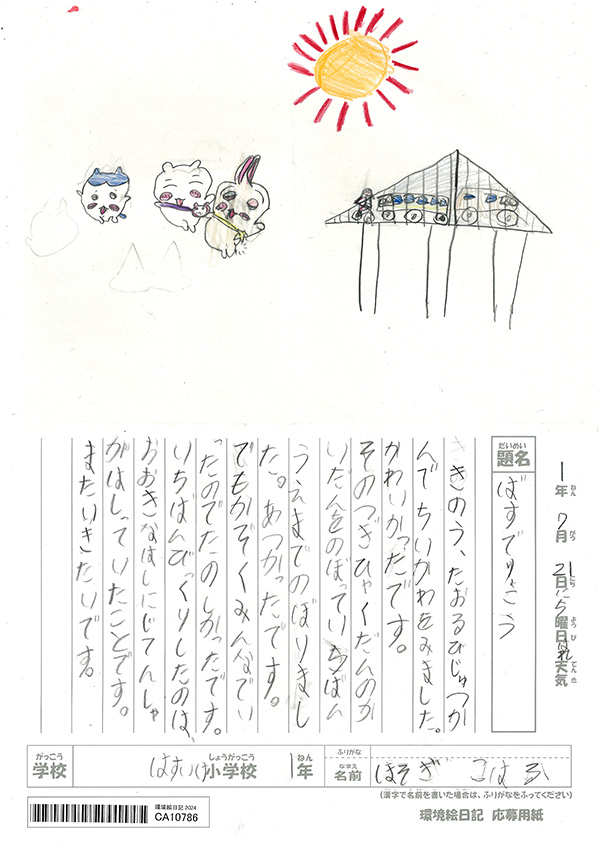 1年 7月 21日 にち曜日 はれ天気
ねん がつ にち ようび てんき
だいめい
題名 ばすでりょこう
きのう、たおるびじゅつか
んでちいかわをみました。
かわいかったです。
そのつぎひゃくだんのか
いだんをのぼっていちばん
うえまでのぼりまし
た。あつかったです。
でもかぞくみんなでい
ったのでたのしかったです。
いちばんびっくりしたのは、
おおきなはしにじてんしゃ
がはしっていたことです。
またいきたいです。
がっこう しょうがっこう ねん ふりがな
学校 はすいけ小学校 1年
なまえ
名前 ほそぎ こはる
(漢字で名前を書いた場合は、ふりがなをふってください)
環境絵日記 2024
CA10786
環境絵日記 応募用紙